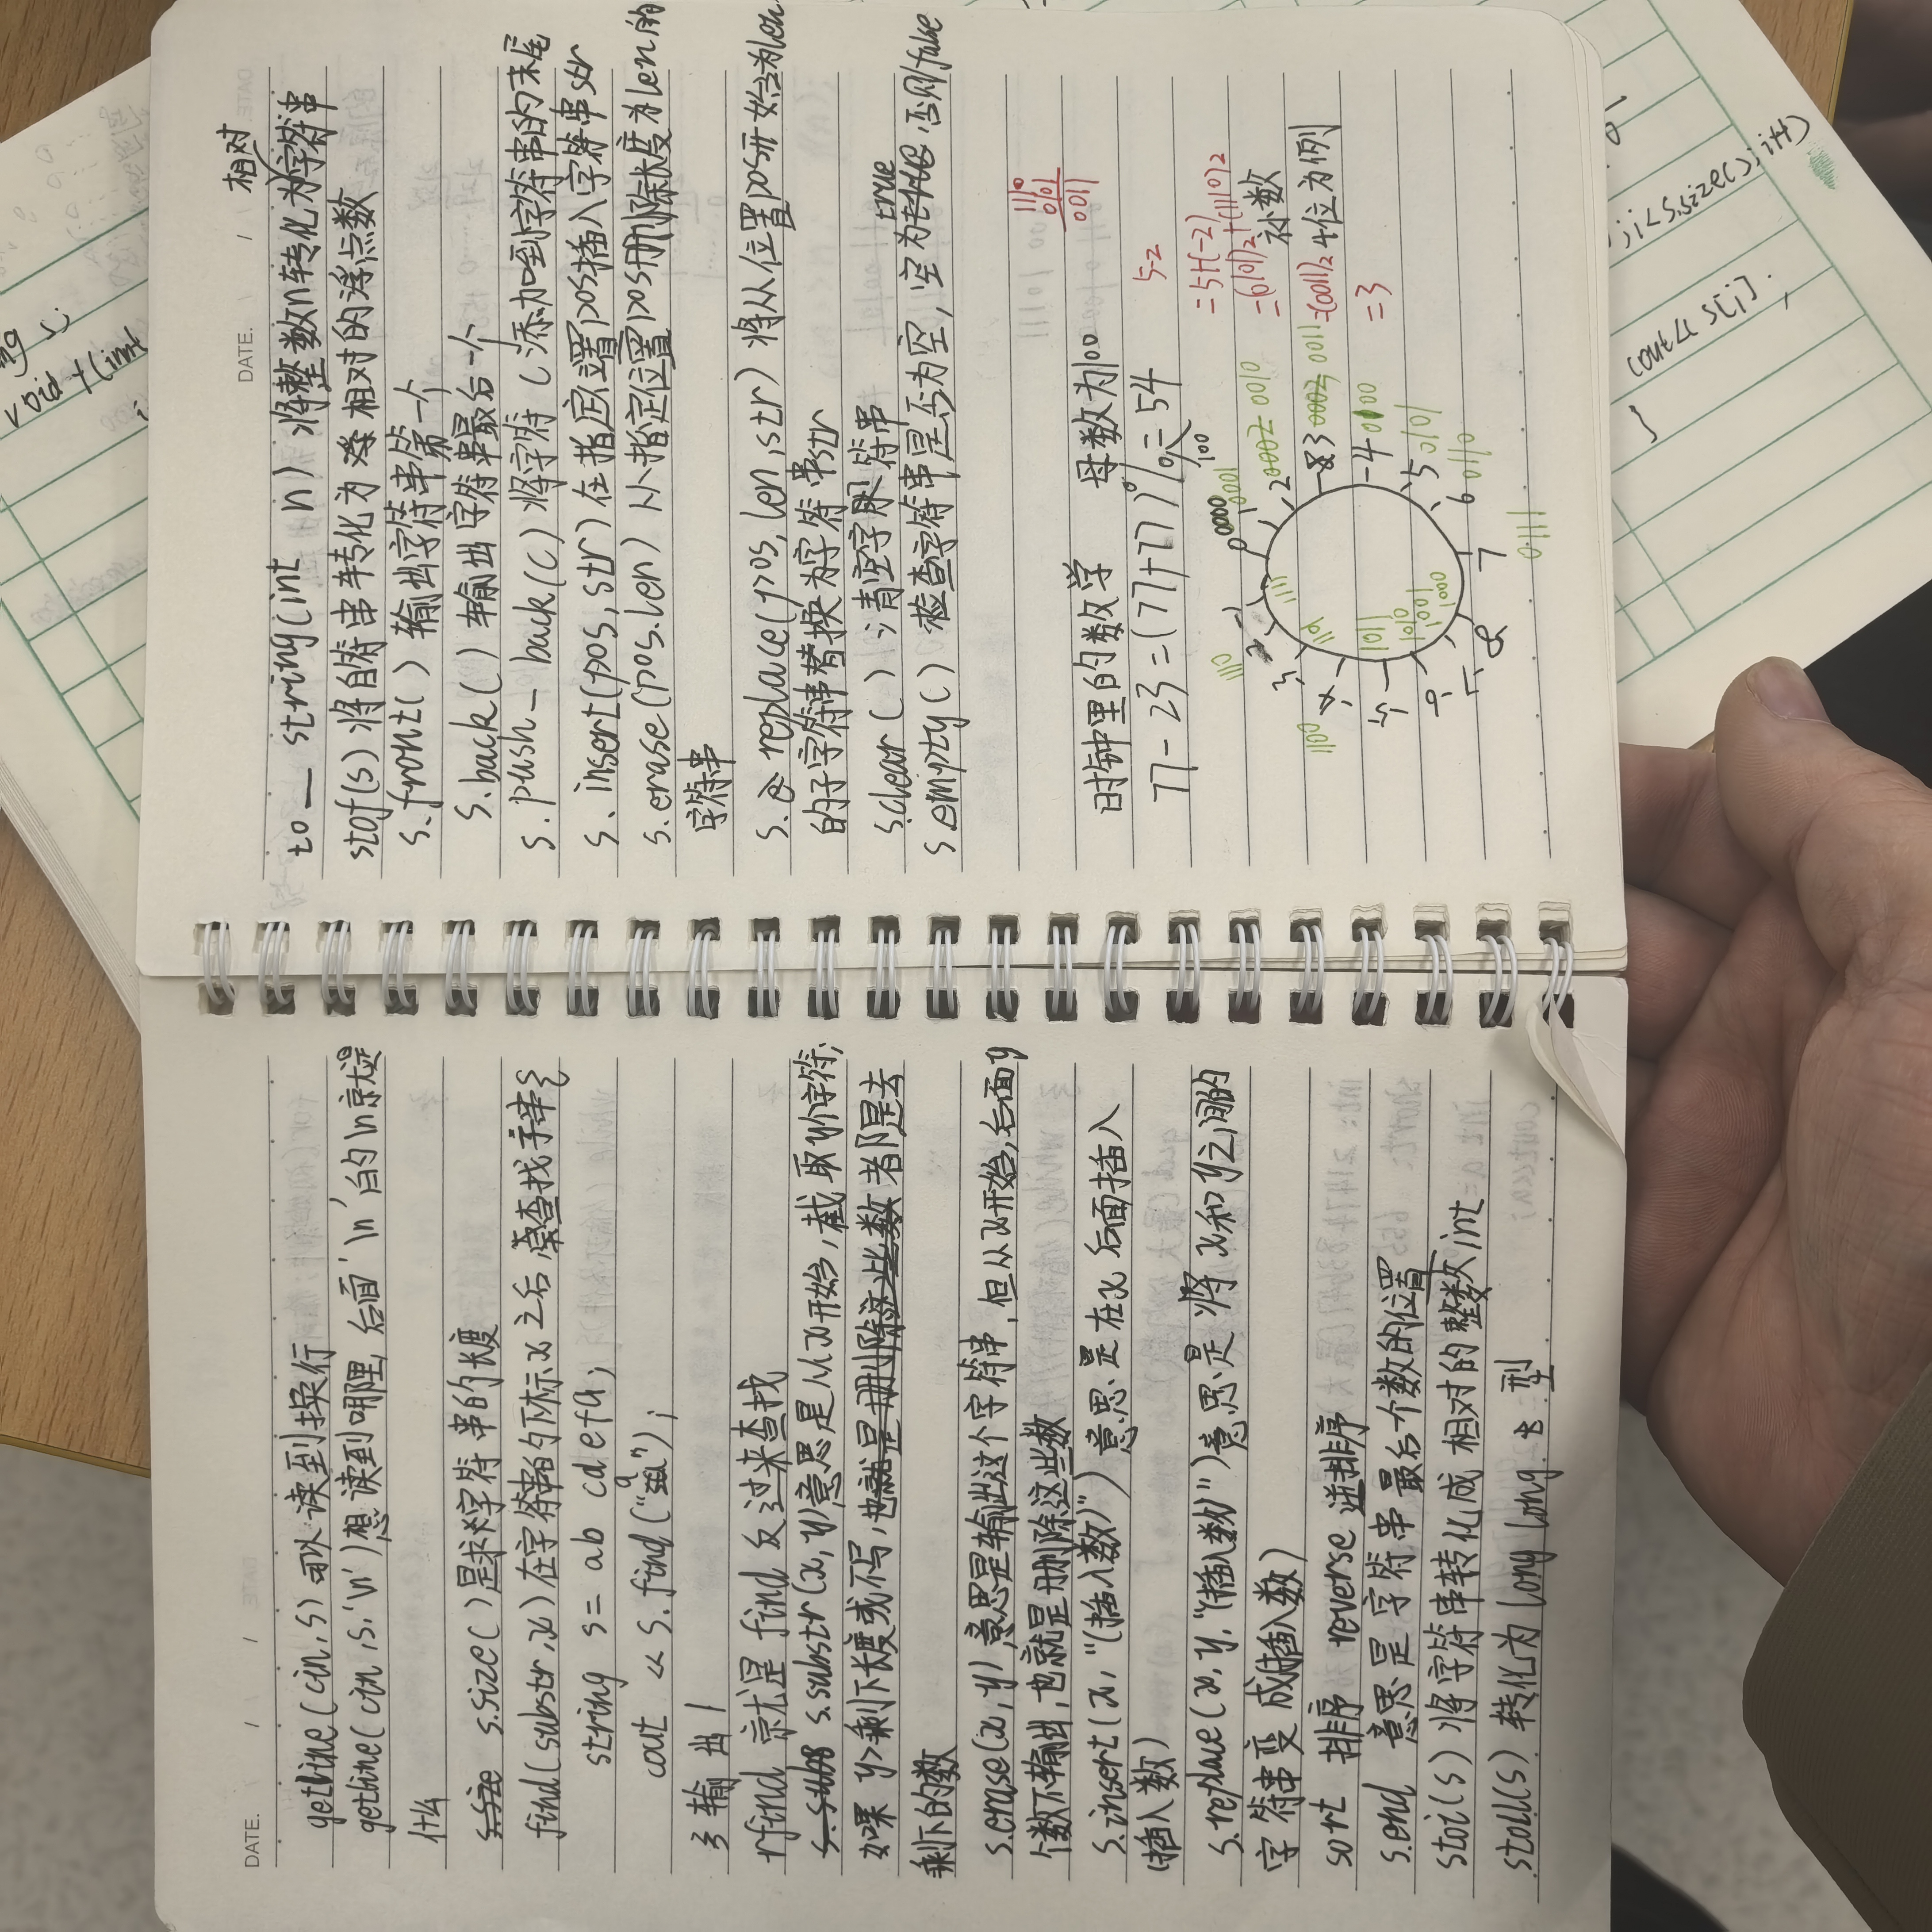 DATE. / /
getline(cin,s) 可以读到换行
getline(cin,s,'\n')想读到哪里,后面'\n'的\n就是
什么
s.size()是求字符串的长度
find(substr,x)在字符串的下标x之后,查找子串s
string s=ab cdefa;
cout << s.find("a");
输出1
rfind 就是 find 反过来查找
s.substr(x,y)意思是从x开始,截取y个字符,
如果 y>剩下长度或不写,也就是删除这些数者都是去
剩下的数
s.erase(x,y)意思是输出这个字符串,但从x开始,后面y
个数不输出,也就是删除这些数
s.insert(x,"(插入数)")意思是在x后面插入
(插入数)
s.replace(x,y,"(插入数)")意思是将x和y之间的
字符串变成(插入数)
sort 排序 reverse 逆排序
s.end 意思是字符串最后个数的位置
stoi(s)将字符串转化成相对的整数int
stoll(s)转化为long long 型
DATE. / /
相对
to_string(int n)将整数n转化为字符串
stof(s)将自符串转化为相对的浮点数
s.front()输出字符串第一个
s.back()输出字符串最后一个
s.push_back(c)将字符c添加到字符串的末尾
s.insert(pos,str)在指定位置pos插入字符串str
s.erase(pos.len)从指定位置pos删除长度为len的
字符串
s.replace(pos,len,str)将从位置pos开始当为len
的子字符串替换为字符串str
s.clear()清空字符串
true
s.empty()检查字符串是否为空,空为true,否则false
1110
0101
0011
时钟里的数学 母数为100
77-23=(77+77)%=54
100
5-2
=5+(-2)
=(0101)2+(1110)2
=(0011)2
=3
补数
4位为例
0 0000
0001
2 0010
3 0011
4 0100
5 0101
6 0110
7
0111
-8
-7
-6
-5
-4
-3
-1
1111
1110
110
1100
1011
1010
1001
1000
void
;i<s.size();i++)
cout<<s[i];
}